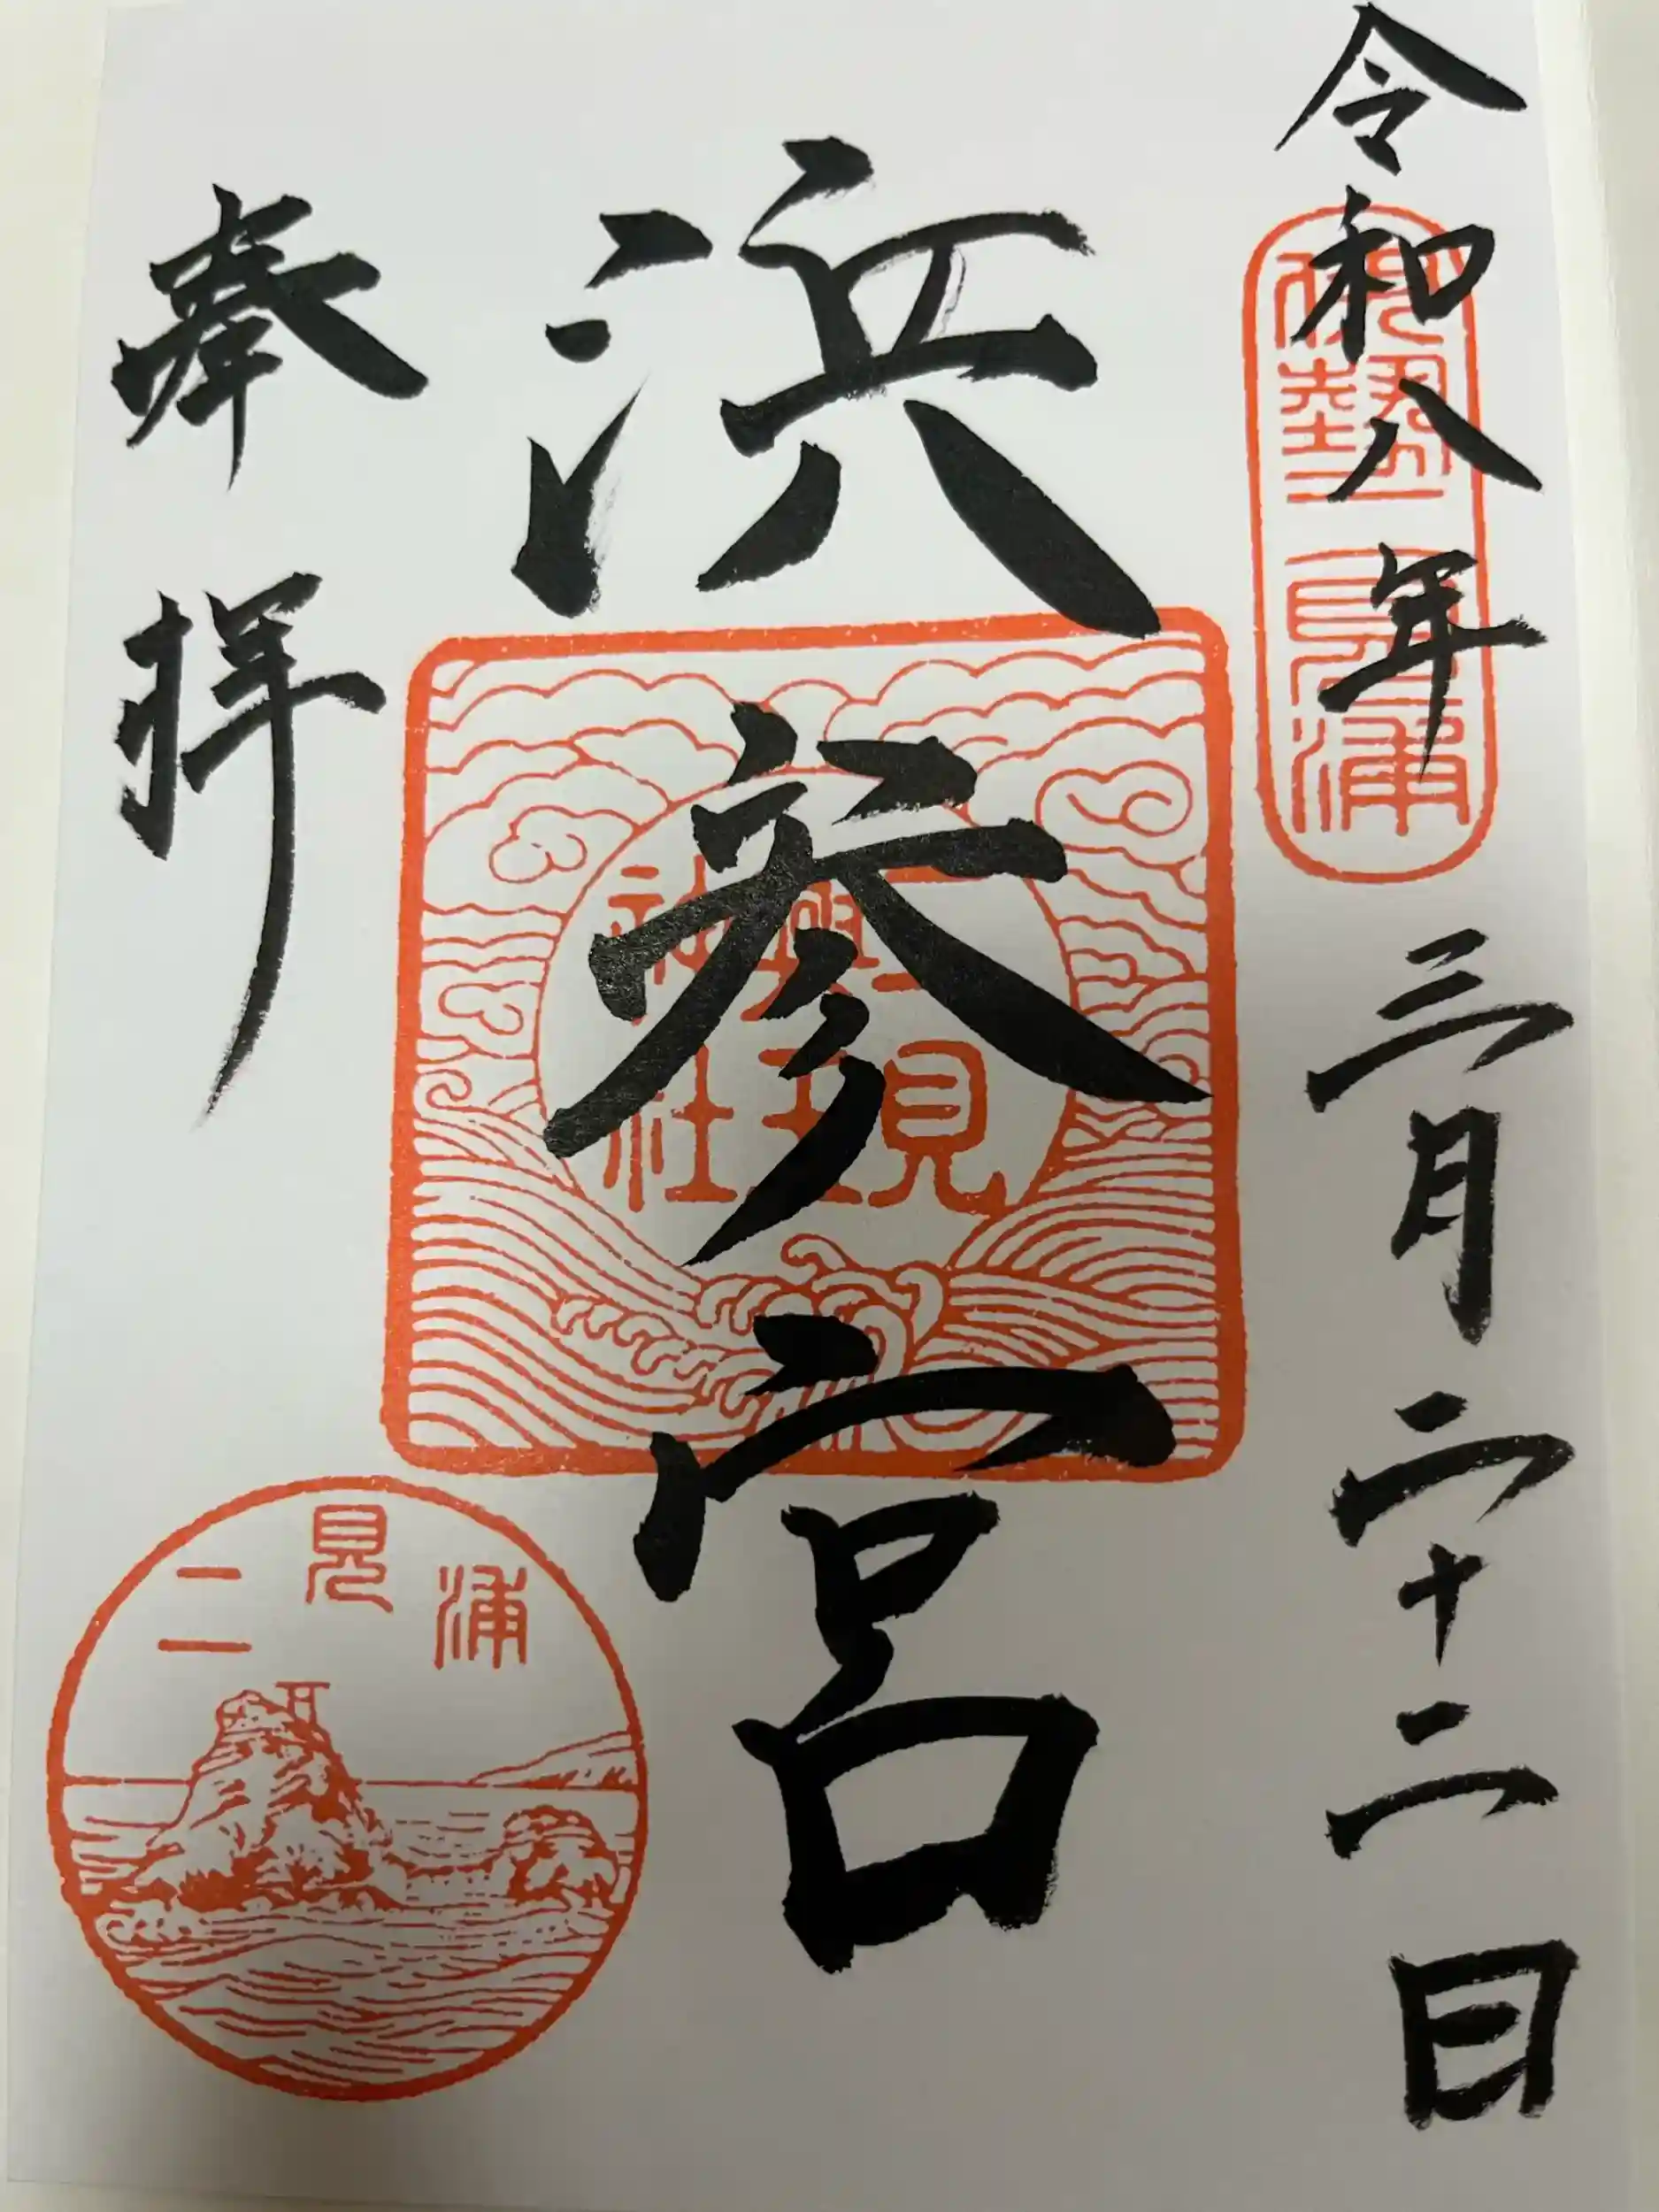 令和八年三月二十二日
伊勢二見浦
浜参宮
二見興玉神社
奉拝
二見浦